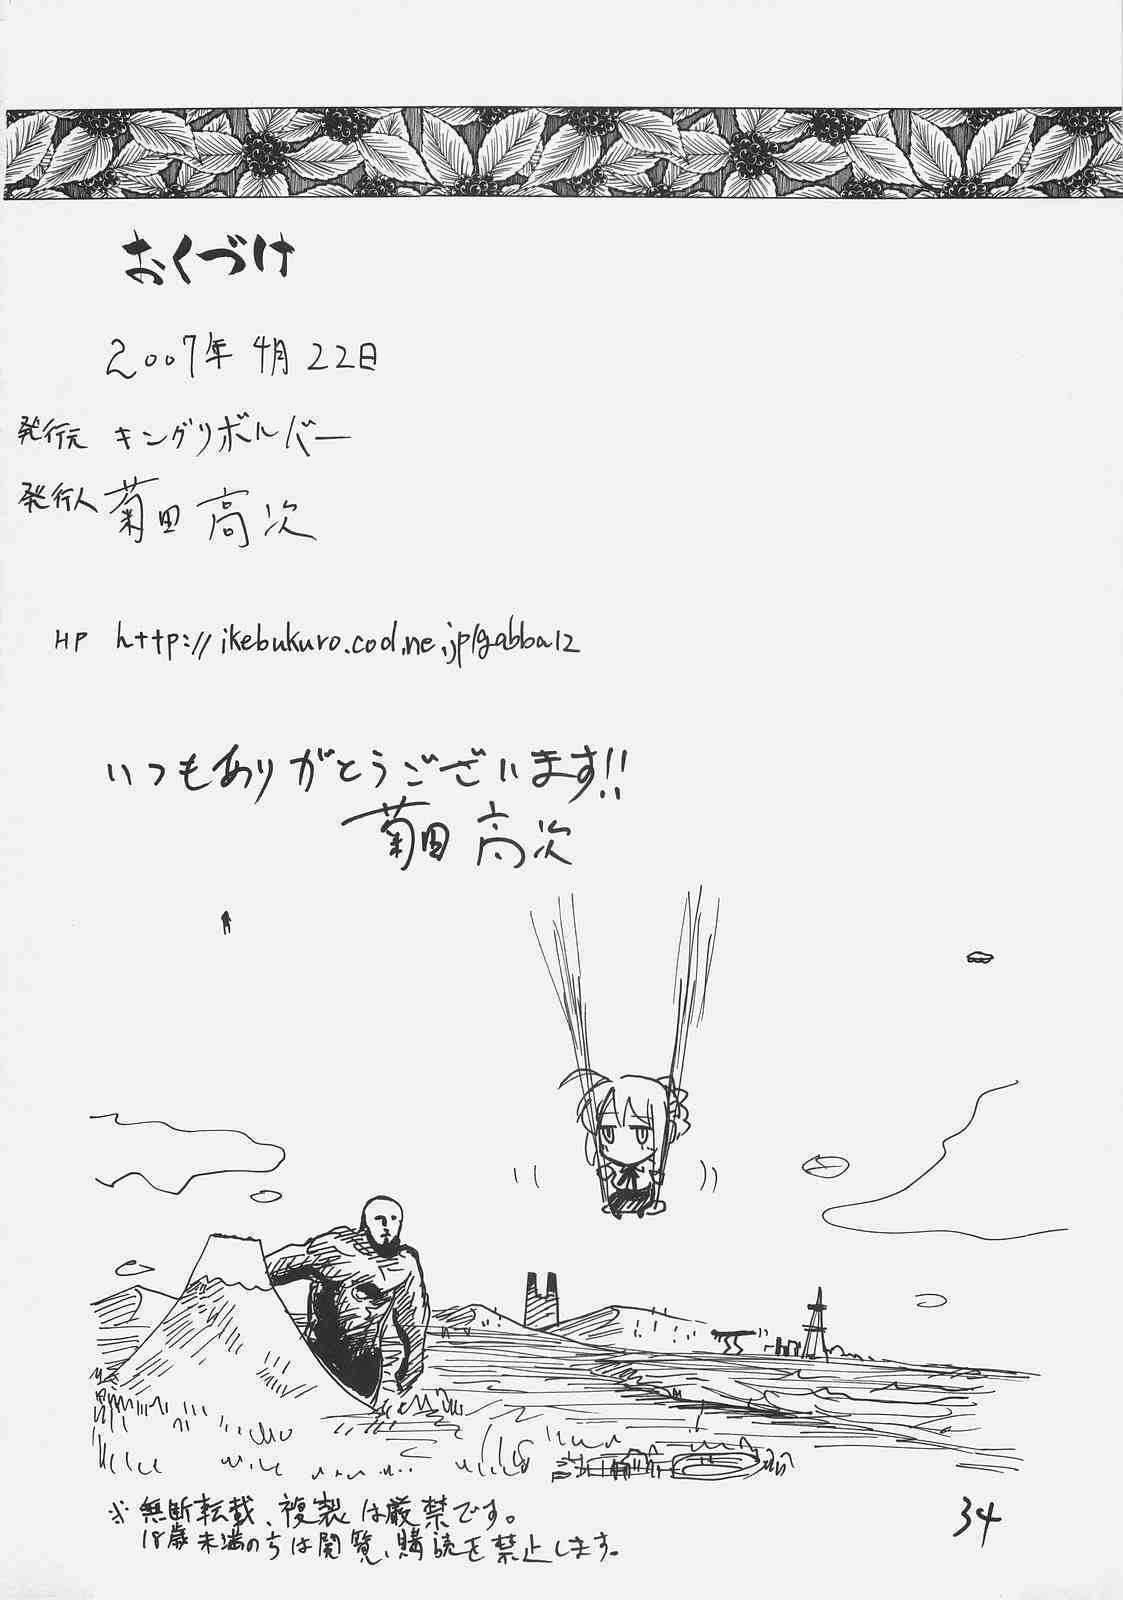 おくづけ
2007年4月22日
発行元 キングリボルバー
発行人 菊田 高次
HP http://ikebukuro.cool.ne.jp/gabba12
いつもありがとうございます!!
菊田 高次
※無断転載、複製は厳禁です。
18歳未満の方は閲覧、購読を禁止します。
34